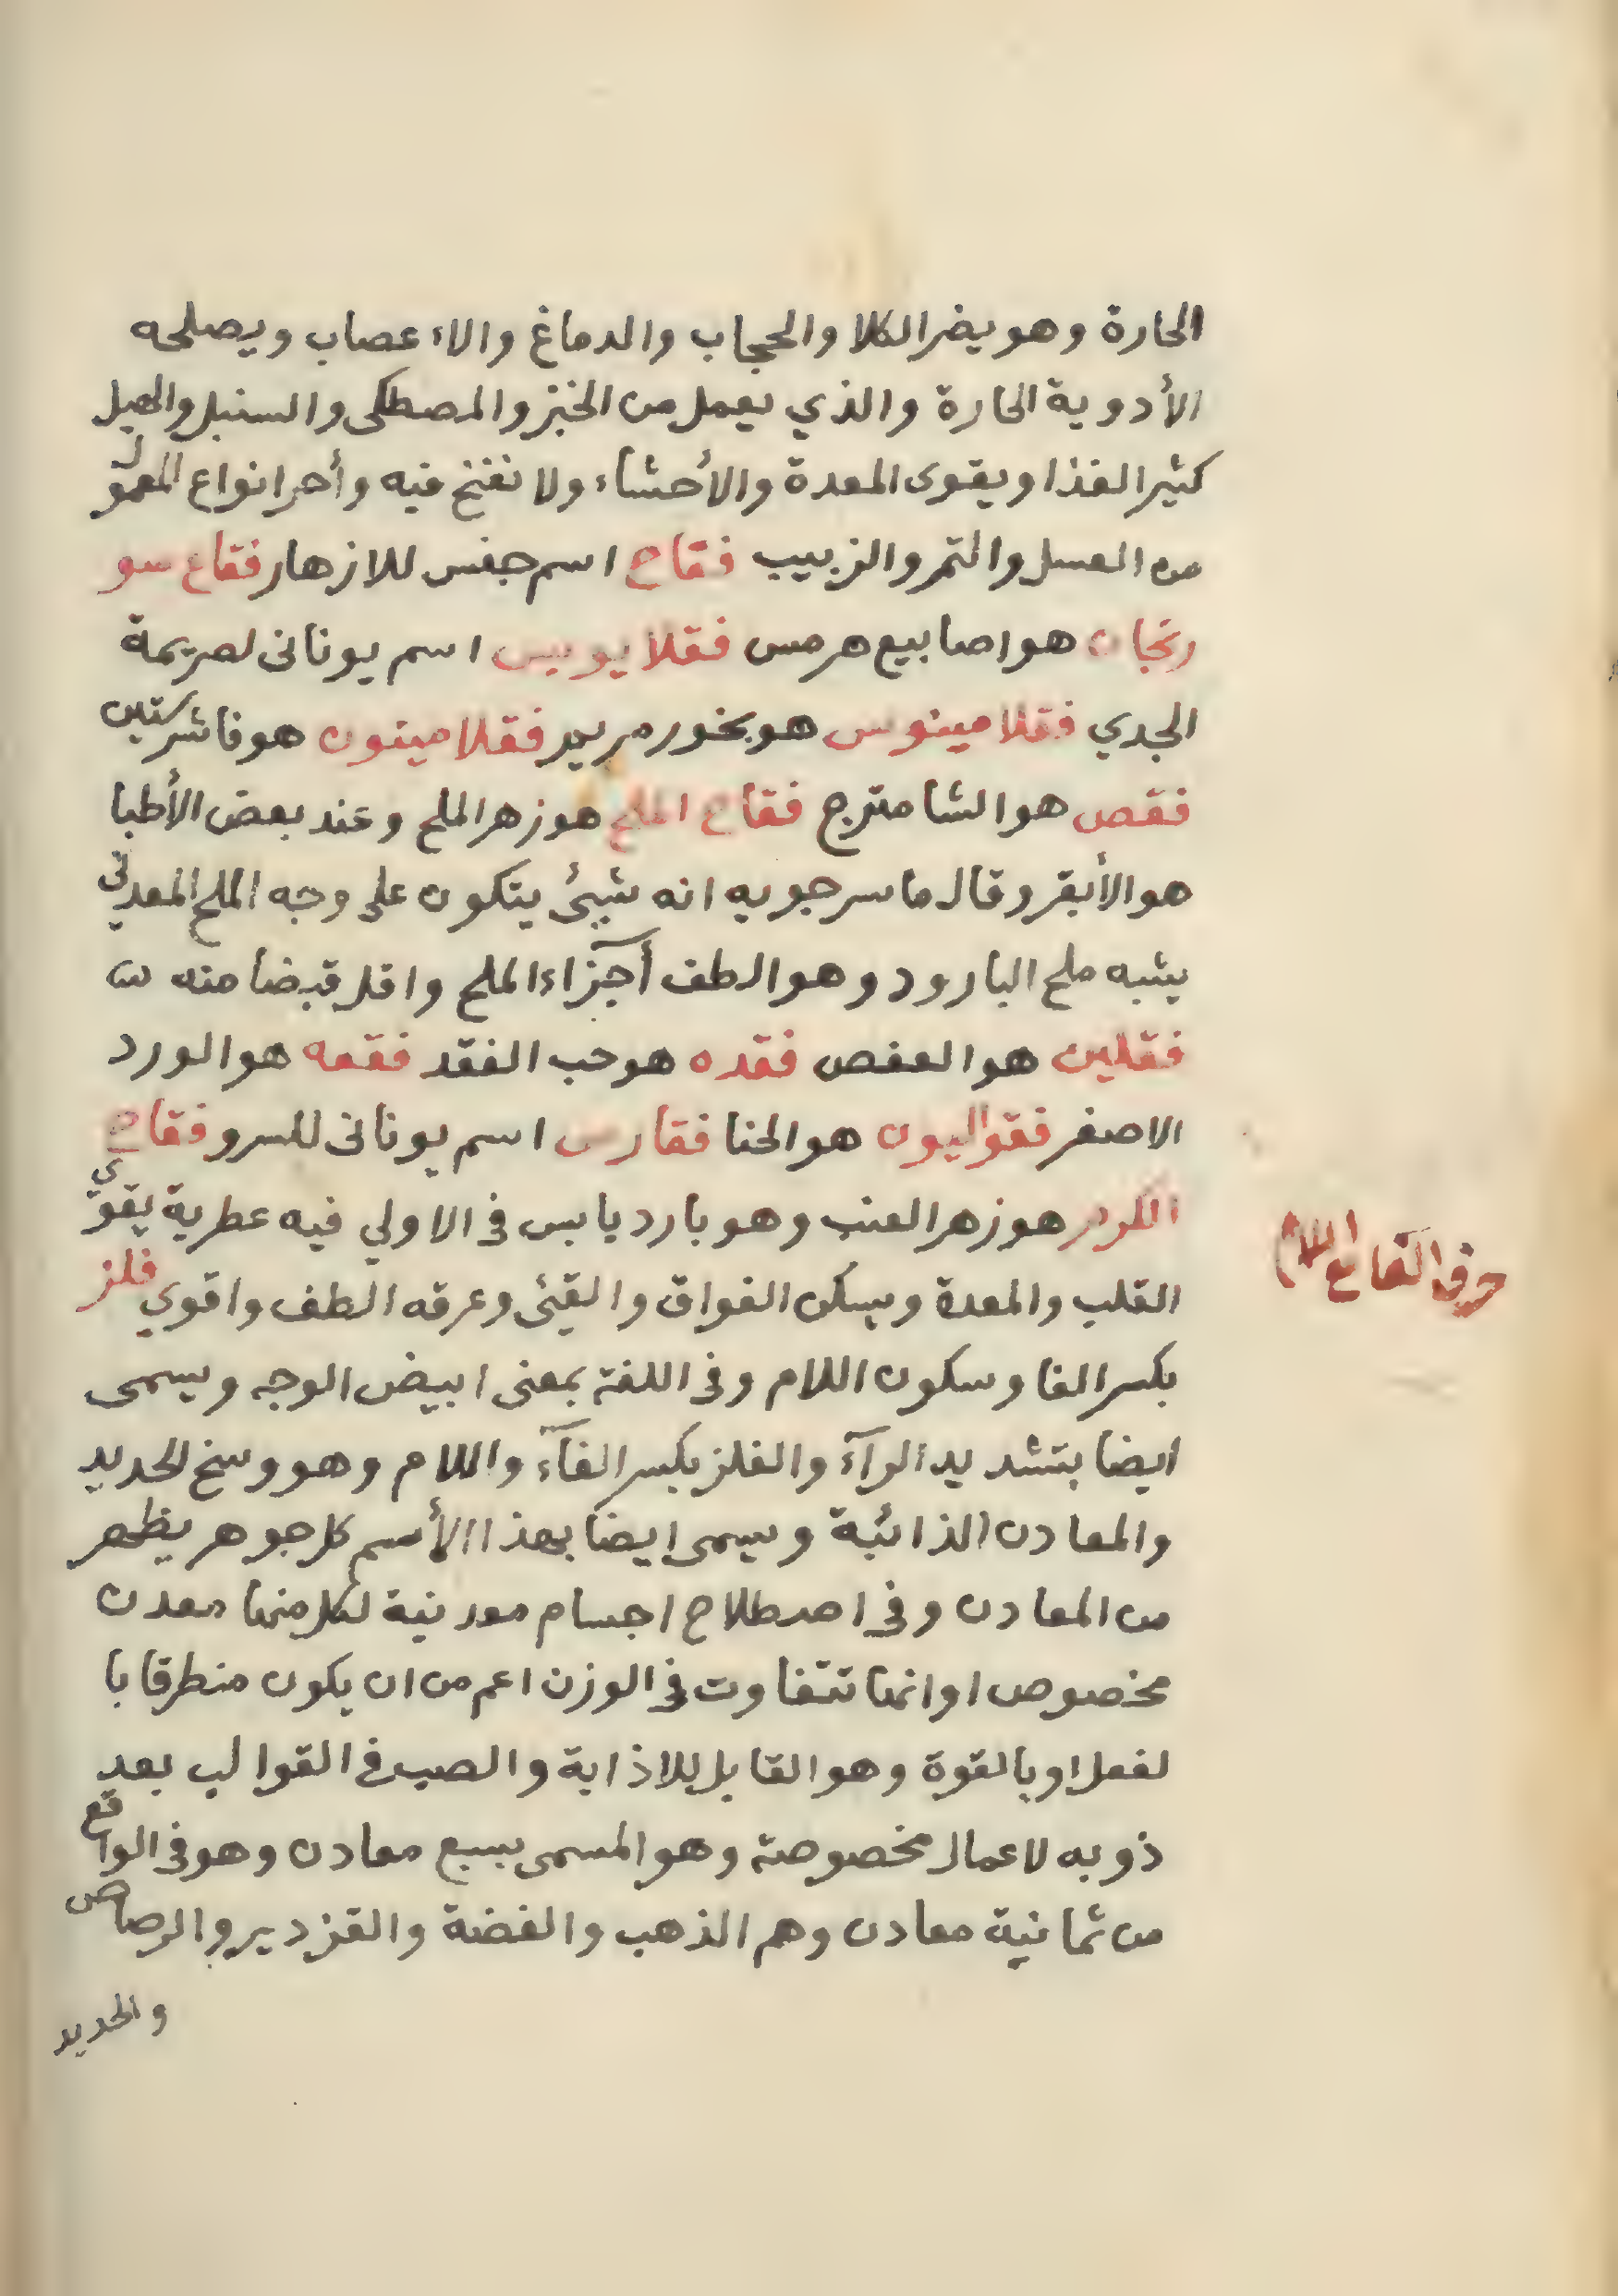 الحارة وهو يضر الكلا والحجاب والدماغ والاءعصاب ويصلحه
الأدوية الحارة والذي يعمل من الخبز والمصطكى والسنبل والهيل
كثير الغذا ويقوى المعدة والأحشاء ولا نفخ فيه وأحر انواع المعمول
من العسل والتمر والزبيب فقاح اسم جنس للازهار فقاع سو
رنجان هو اصابيع هرمس فقلا يوميس اسم يونانى لصريمة
الجدي فقلامينوس هو بخور مريم فقلامينون هو فاشرستين
فقص هو الشامترج فقاح الملح هو زهر الملح وعند بعض الأطبا
هو الأبقر وقال ماسرجويه انه شيئ يتكون على وجه الملح المعدني
يشبه ملح البارود وهو الطف أجزاء الملح واقل قبضا منه
فقلين هو العفص فقده هو حب الفقد فقعه هو الورد
الاصفر فقواليون هو الحنا فقارس اسم يونانى للسرو فقاح
الكرم هو زهر العنب وهو بارد يابس في الاولي فيه عطرية يقوي
القلب والمعدة ويسكن الفواق والقيئ وعرقه الطف واقوي فلز
بكسر الفا وسكون اللام وفى اللغة بمعنى ابيض الوجه ويسمى
ايضا بتشديد الرآء والفلز بكسر الفآء واللام وهو وسخ الحديد
والمعادن الذائبة ويسمى ايضا بهذا الأسم كل جوهر يظهر
من المعادن وفي اصطلاح اجسام معدنية لكل منها معدن
مخصوص اوانها تتفاوت في الوزن اعم من ان يكون منطرقا با
لفعل او بالقوة وهو القابل للاذابة والصب في القوالب بعد
ذوبه لاعمال مخصوصة وهو المسمى بسبع معادن وهو فى الواقع
من ثمانية معادن وهم الذهب والفضة والقزدير والرصاص
والحديد
حرف الفا مع اللام